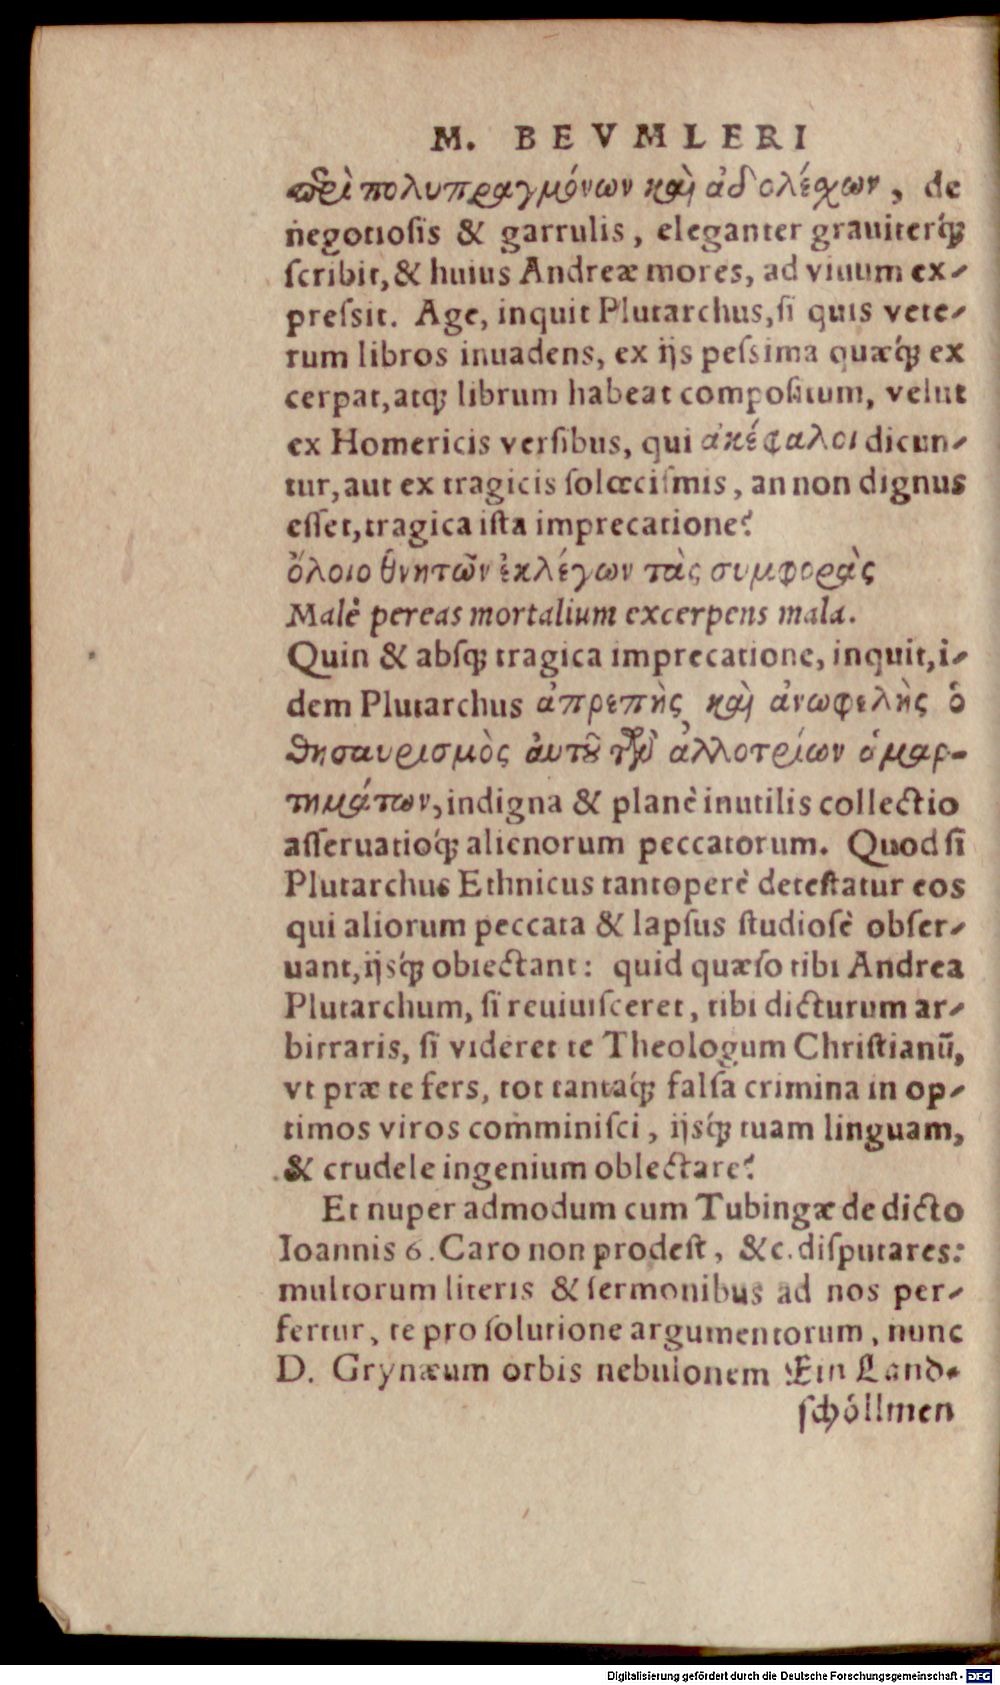 M. BEVMLERI
περὶ πολυπραγμόνων καὶ ἀδολέχων, de
negotiosis & garrulis, eleganter grauiterq́;
ſcribit, & huius Andreæ mores, ad viuum ex-
preſsit. Age, inquit Plutarchus, ſi quis vete-
rum libros inuadens, ex ijs peſsima quæq́; ex
cerpat, atq; librum habeat compoſitum, velut
ex Homericis verſibus, qui ἀκέφαλοι dicun-
tur, aut ex tragicis ſolœciſmis, an non dignus
eſſet, tragica iſta imprecatione?
ὄλοιο θνητῶν ἐκλέγων τὰς συμφορὰς
Malè pereas mortalium excerpens mala.
Quin & abſq; tragica imprecatione, inquit, i-
dem Plutarchus ἀπρεπὴς καὶ ἀνωφελὴς ὁ
θησαυρισμὸς ἀυτοῦ τῶν ἀλλοτρίων ἁμαρ-
τημάτων, indigna & planè inutilis collectio
aſſeruatioq́; alienorum peccatorum. Quod ſi
Plutarchus Ethnicus tantoperè deteſtatur eos
qui aliorum peccata & lapſus ſtudioſè obſer-
uant, ijsq́; obiectant: quid quæſo tibi Andrea
Plutarchum, ſi reuiuiſceret, tibi dicturum ar-
bitraris, ſi videret te Theologum Chriſtianū,
vt præ te fers, tot tantaq́; falſa crimina in op-
timos viros comminiſci, ijsq́; tuam linguam,
& crudele ingenium oblectare?
Et nuper admodum cum Tubingæ de dicto
Ioannis 6. Caro non prodeſt, &c. diſputares:
multorum literis & ſermonibus ad nos per-
fertur, te pro ſolutione argumentorum, nunc
D. Grynæum orbis nebulonem Ein Land-
ſchöllmen
Digitalisierung gefördert durch die Deutsche Forschungsgemeinschaft - DFG